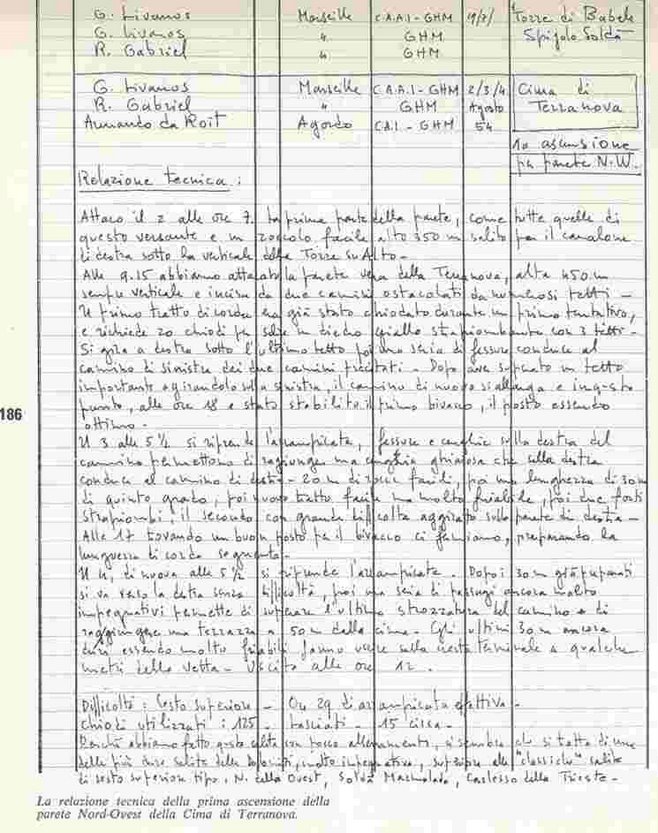 G. Livanos Marseille C.A.A.I-GHM 19/7/ Torre di Babele
G. Livanos " GHM Spigolo Soldà
R. Gabriel " GHM
G. Livanos Marseille C.A.A.I-GHM 2/3/4 Cima di
R. Gabriel " GHM Agosto Terranova
Armando da Roit Agordo C.A.I-GHM 54
1a ascensione
pa parete N.W.
Relazione tecnica :
Attaco il 2 alle ore 7. La prima parte della parete, come tutte quelle di
questo versante e un zoccolo facile alto 350 m salito per il canalone
di destra sotto la verticale della Torre Su Alto -
Alle 9.15 abbiamo attaccato la parete vera della Terranova, alta 450 m
sempre verticale e incisa da due camini ostacolati da numerosi tetti -
Il primo tratto di corda era già stato chiodato durante un primo tentativo,
e richiede 20 chiodi per salire un diedro giallo strapiombante con 3 tetti -
Si gira a destra sotto l'ultimo tetto poi una seria di fessure conduce al
camino di sinistra dei due camini precitati - Dopo aver superato un tetto
importante girandolo sulla sinistra, il camino di nuovo si allarga e in questo
punto, alle ore 18 e stato stabilito il primo bivacco, il posto essendo
ottimo -
Il 3 alle 5½ si riprende l'arrampicata, fessure e cenghie sulla destra del
cammino permettono di raggiungere una cenghia ghiaiosa che sulla destra
conduce al camino di destra - 20 m di rocce facili, poi una lunghezza di 30m
di quinto grado, poi nuovo tratto facile ma molto friabile, poi due forti
strapiombi, il secondo con grande difficoltà aggirato sulla parete di destra -
Alle 17 trovando un buon posto per il bivacco ci fermiamo, preparando la
lunghezza di corda seguente -
Il 4, di nuovo alle 5½ si riprende l'arrampicata. Dopo i 30m già preparati
si va verso la destra senza difficoltà, poi una seria di passaggi ancora molto
impegnativi permette di superare l'ultima strozzatura del camino e di
raggiungere una terrazza a 50m della cima - Gli ultimi 30m ancora
duri essendo molto friabili fanno uscire sulla cresta terminale a qualche
metri della vetta - Uscita alle ore 12.
Difficoltà : Sesto superiore - Ore 29 di arrampicata effettiva -
Chiodi utilizzati : 125 - lasciati - 15 circa -
Perchè abbiamo fatto questa salita con pocco allenamento, ci sembra che si tratta di una
delle più dure salite delle Dolomiti, molto impegnativa, superiore alle "classiche" salite
di sesto superiore tipo, N. della Ovest, Soldà Marmolada, Carlesso della Trieste -
186
La relazione tecnica della prima ascensione della
parete Nord-Ovest della Cima di Terranova.